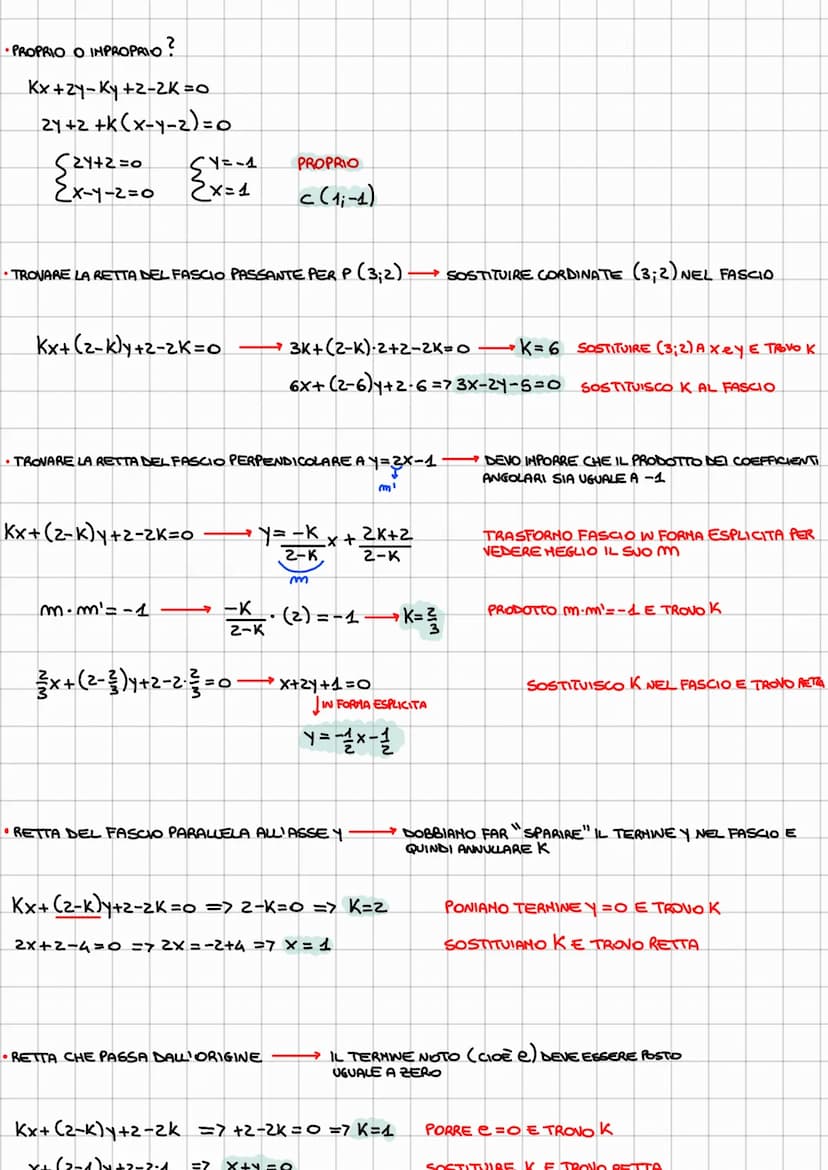 • PROPRIO O INPROPRIO?
Kx+2y-Ky+2-2K=0
2y+2+K(x-y-2)=0
{2y+2=0 {y=-1 PROPRIO
{x-y-2=0 {x=1 C(1;-1)
• TROVARE LA RETTA DEL FASCIO PASSANTE PER P(3;2) → SOSTITUIRE CORDINATE (3;2) NEL FASCIO
Kx+(2-k)y+2-2K=0 → 3K+(2-K)·2+2-2K=0 → K=6 SOSTITUIRE (3;2) A x e y E TROVO K
6x+(2-6)y+2·6 => 3x-2y-5=0 SOSTITUISCO K AL FASCIO
• TROVARE LA RETTA DEL FASCIO PERPENDICOLARE A y=2x-1 → DEVO INPORRE CHE IL PRODOTTO DEI COEFFICIENTI
m' ANGOLARI SIA UGUALE A -1
Kx+(2-K)y+2-2K=0 → y=-K/2-K x + 2K+2/2-K TRASFORMO FASCIO IN FORMA ESPLICITA PER
m VEDERE MEGLIO IL SUO m
m·m'=-1 → -K/2-K · (2)=-1 → K=2/3 PRODOTTO m·m'=-1 E TROVO K
2/3x+(2-2/3)y+2-2·2/3=0 → x+2y+1=0 SOSTITUISCO K NEL FASCIO E TROVO RETTA
↓ IN FORMA ESPLICITA
y=-1/2x-1/2
• RETTA DEL FASCIO PARALLELA ALL'ASSE Y → DOBBIAMO FAR "SPARIRE" IL TERMINE Y NEL FASCIO E
QUINDI ANNULLARE K
Kx+(2-K)y+2-2K=0 => 2-K=0 => K=2 PONIAMO TERMINE Y=0 E TROVO K
2x+2-4=0 => 2x=-2+4 => x=1 SOSTITUIAMO K E TROVO RETTA
• RETTA CHE PASSA DALL'ORIGINE → IL TERMINE NOTO (CIOÈ e) DEVE ESSERE POSTO
UGUALE A ZERO
Kx+(2-K)y+2-2k => +2-2K=0 => K=1 PORRE e=0 E TROVO K
x+(2-1)y+2-2·1 => x+y=0 SOSTITUIRE K E TROVO RETTA